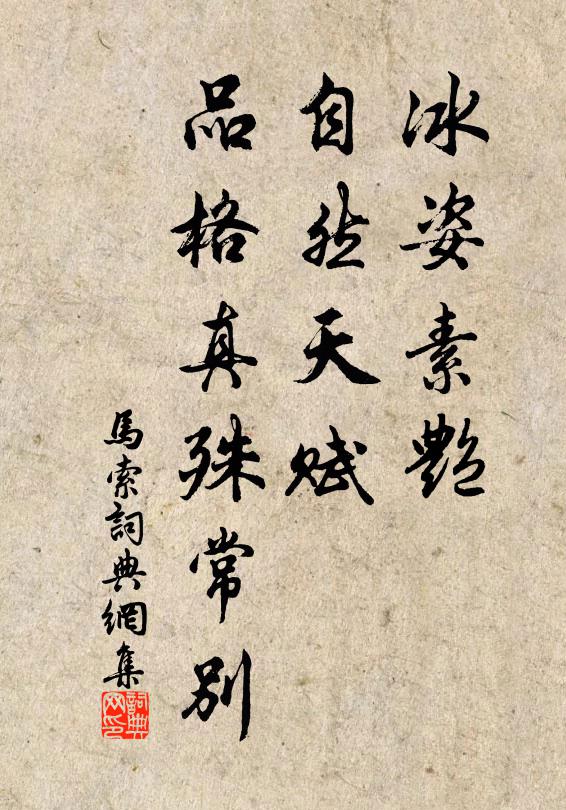 冰姿素艷
自然天赋
品格真殊常别
馬索詞典網集
詞典
网印